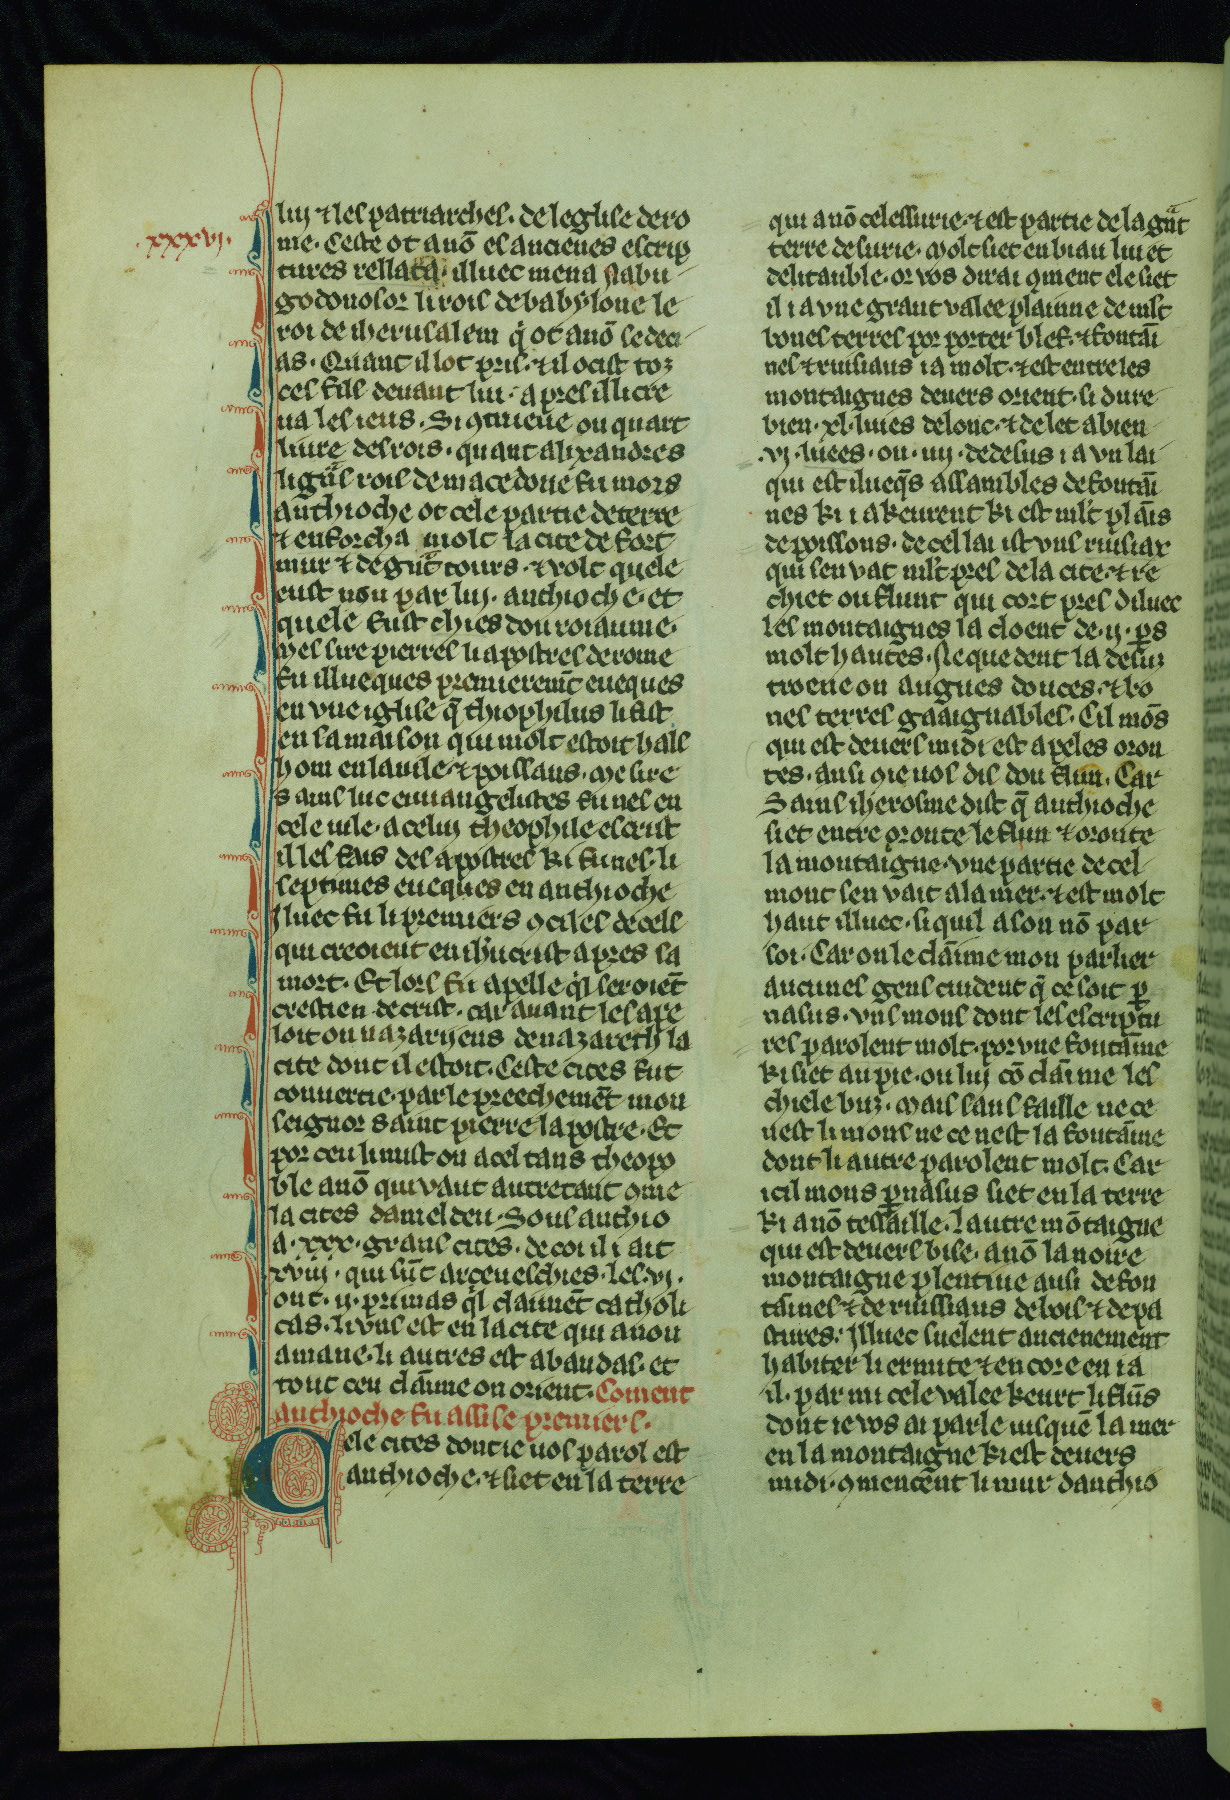 .xxxvj.
luj ⁊ les patriarches. de leglise de ro
me. Ceste ot anō es ancienes escrip
tures reblata. illuec mena Nabu
godonosor li rois de babyloine le
roi de iherusalem q̇ ot anō sedeci
as. Quant il lot pris. ⁊ il ocist toz
ces fils devant lui. apres il li cre
va les ieus. Si ꝯtrueve ou quart
livre des rois. quant alixandres
li grās rois de macedone fu mors
anthioche ot cele partie de terre
⁊ enforcha molt la cite de fort
mur ⁊ de grāt tours. ⁊ volt quele
eust non par luj. anthioche. et
quele fust chies dou roiaume.
Mes sire pierres li apostres de rome
fu illueques premieremēt eveques
en une iglise q̄ thiophilus li fist
en sa maison qui molt estoit hals
hom en la vile. ⁊ poissans. Me sire
Sains luc euuangelistes fu nes en
cele vile. a celuj theophile escrist
il les fais des apostres ki fu nes. li
septimes eveques en anthioche
Jluec fu li premiers ꝯciles de cels
qui creoient en ih̄ucrist apres sa
mort. Et lors fu apelle q̇l seroiēt
crestien de crist. car avant les ape
loit on nazarijens de nazareth la
cite dont il estoit. Ceste cites fut
convertie. par le preechemēt mon
seignor saint pierre lapostre. Et
por ceu li mist on a cel tans theopo
ble anō qui vaut autretant ꝯme
la cites dameldeu. Sous anthio
a. xxx. grans cites. de coi il i ait
xviij. qui sūt arcevesches. les. vj.
ont. ij. primas q̇l claimēt catholi
cas. li uns est en la cite qui a non
amane. li autres est abaudas. et
tout ceu claime on orient. Coment
anthioche fu assise premiers.
Cele cites dont ie vos parol est
anthioche. ⁊ siet en la terre
qui a nō celessurie. ⁊ est partie de la grāt
terre de surie. Molt siet en biau liu et
delitauble. or vos dirai ꝯment ele siet
il i a une grant valee plainne de mlt
bones terres por porter bles. ⁊ fontāi
nes ⁊ ruisiaus i a molt. ⁊ est entre les
montaignes devers orient. si dure
bien. xl. liues de lonc. ⁊ de let a bien
.vj. liuees. ou. iiij. dedesus i a un lai
qui est illueq̄s assambles de fontāi
nes ki i akeurent ki est mlt plāis
de poissons. de cel lai ist uns ruisiax
qui sen vat mlt pres de la cite. ⁊ re
chiet ou flunt qui cort pres diluec
les montaignes la cloent de. ij. ꝑs
molt hautes. Neque dent la desuz
troeve on augues douces. ⁊ bo
nes terres gaaignables. Cil mōs
qui est devers midi est apeles oron
tes. ausi ꝯ ie vos dis dou flun. Car
Sains iherosme dist q̄ anthioche
siet entre oronte le flun ⁊ oronte
la montaigne. une partie de cel
mont sen vait a la mer. ⁊ est molt
haut illuec. si quil a son nō par
soi. Car on le claīme mon parlier
aucunes gens cuident q̄ ce soit ꝑ
nasus. uns mons dont les escriptu
res parolent molt. por une fontaīne
ki siet au pie. ou luj cō claīme les
chiele buz. Mais sans faille ne ce
nest li mons ne ce nest la fontaīne
dont li autre parolent molt. Car
icil mons ꝑnasus siet en la terre
ki a nō tessaille. Lautre mōtaigne
qui est devers bise. a nō la noire
montaigne plentive ausi de fon
taīnes ⁊ de ruissiaus de bois ⁊ de pa
stures. Jlluec suelent ancienement
habiter li ermite ⁊ encore en i a
il. par mi cele valee keurt li flūs
dont ie vos ai parle iusquē la mer
en la montaigne ki est devers
midi. ꝯmencent li mur danthio